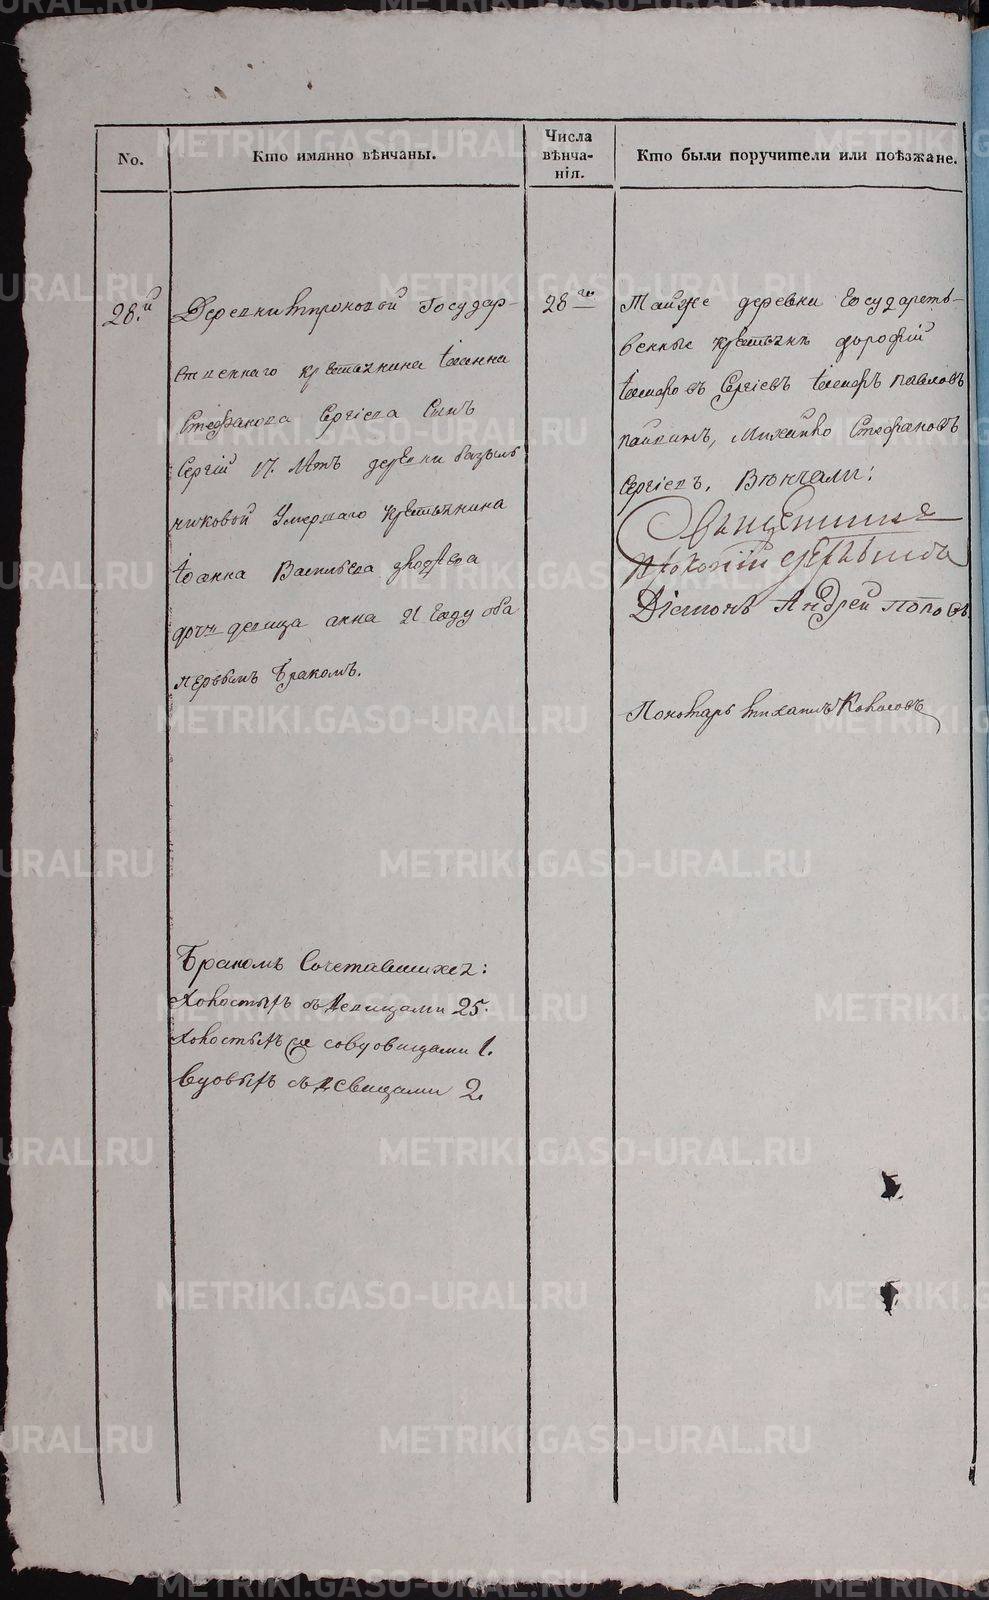 No.
Кто имянно вѣнчаны.
Числа
вѣнча-
нія.
Кто были поручители или поѣзжане.
28.й
Деревни Тироновой Государ-
ственнаго крестьянина Іоанна
Стефанова Сергіева Сынъ
Сергій 17. лѣтъ деревни базыль
никовой Умершаго крестьянина
Іоанна Васильева
дочь девица анна 21 году оба
первымъ бракомъ.
28го
Тойже деревни Государст-
венные крестьяне дорофій
Сергіевъ павловъ
Стефановъ
Сергіевъ. Вѣнчали:
Священникъ
Прокопій
Діаконъ Андрей Поповъ
Пономарь
Бракомъ Сочетавшихся:
Холостыхъ съ Девицами 25.
Холостыхъ совдовицами 1.
Вдовыхъ съ девицами 2.
METRIKI.GASO-URAL.RU